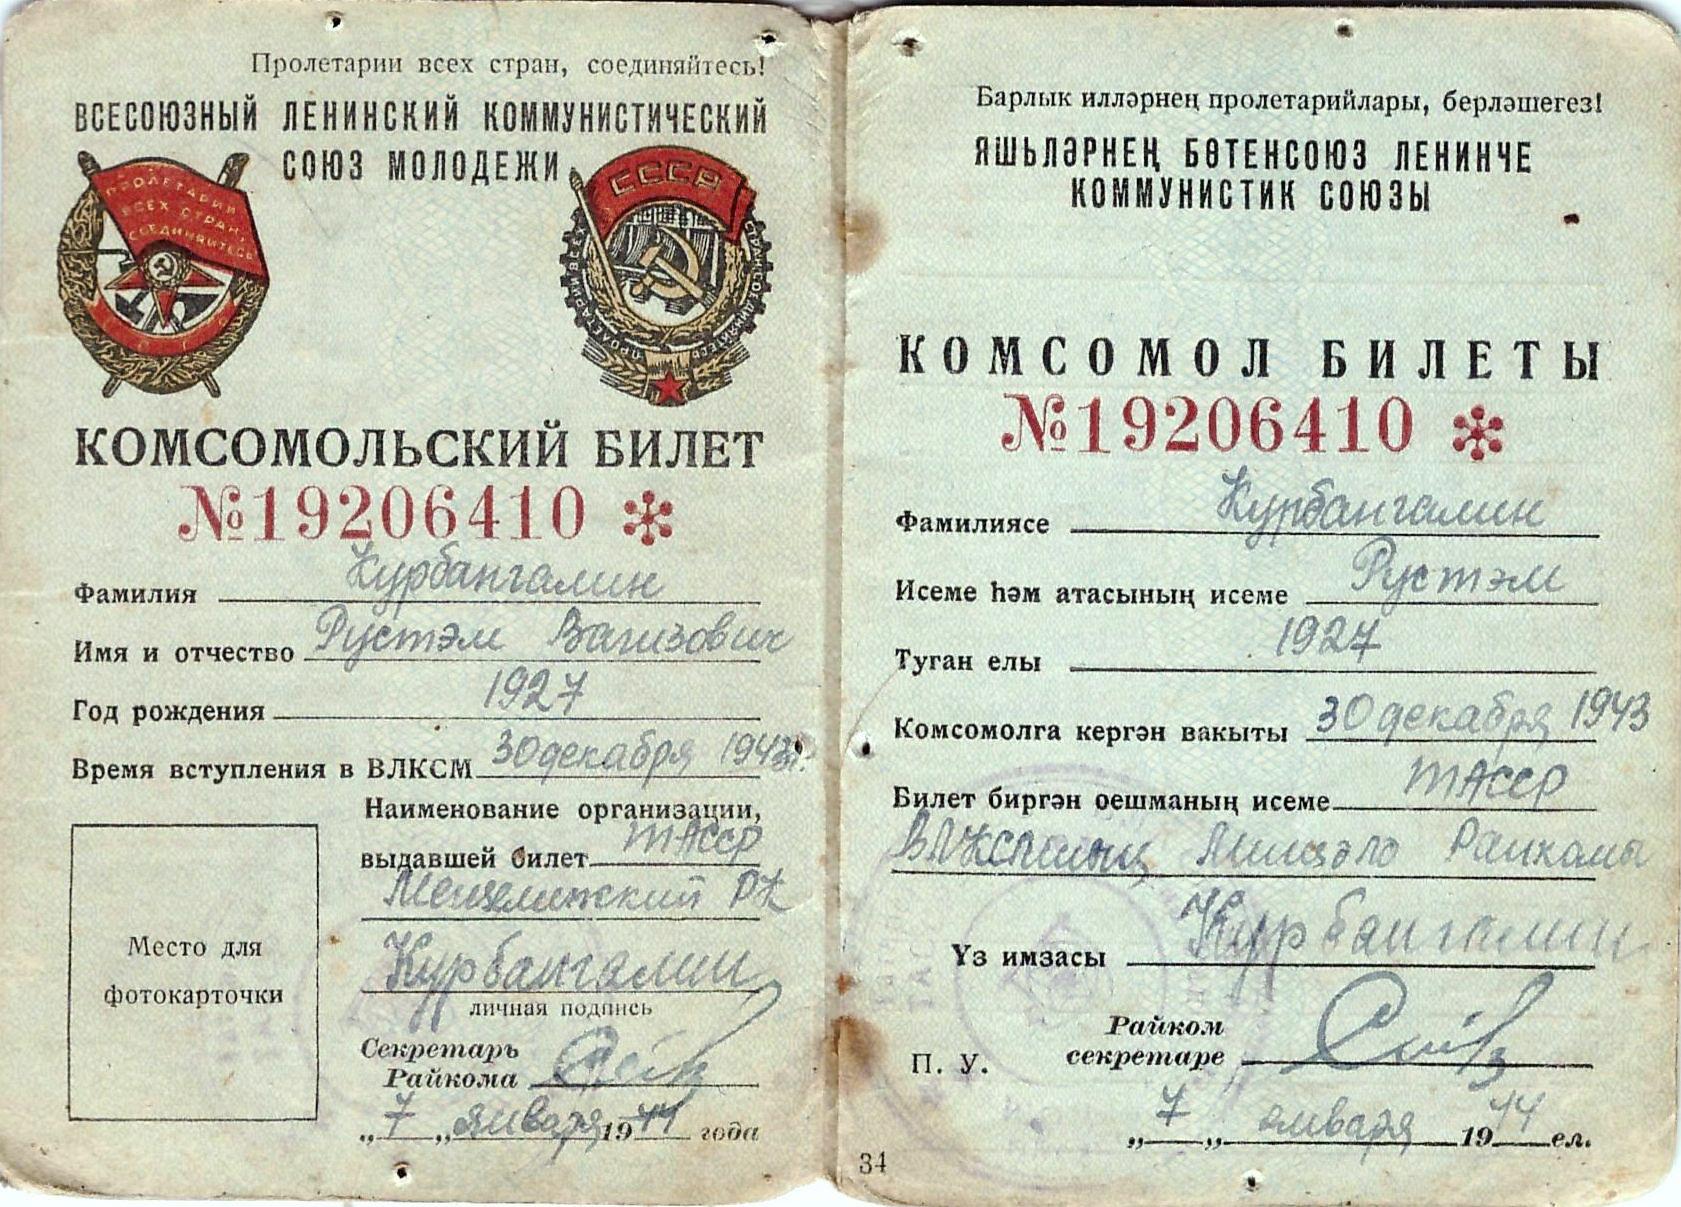 Пролетарии всех стран, соединяйтесь!
ВСЕСОЮЗНЫЙ ЛЕНИНСКИЙ КОММУНИСТИЧЕСКИЙ
СОЮЗ МОЛОДЕЖИ
ПРОЛЕТАРИИ
ВСЕХ СТРАН,
СОЕДИНЯЙТЕСЬ
СССР
КОМСОМОЛЬСКИЙ БИЛЕТ
№19206410
Фамилия Курбангалин
Имя и отчество Рустэм Вагизович
Год рождения 1927
Время вступления в ВЛКСМ 30 декабря 1943г.
Наименование организации,
выдавшей билет ТАССР
Мензелинский РК
Курбангалин
личная подпись
Секретарь
Райкома
„7„ января 1944 года
Место для
фотокарточки
Барлык илләрнең пролетарийлары, берләшегез!
ЯШЬЛӘРНЕҢ БӨТЕНСОЮЗ ЛЕНИНЧЕ
КОММУНИСТИК СОЮЗЫ
КОМСОМОЛ БИЛЕТЫ
№19206410
Фамилиясе Курбангалин
Исеме һәм атасының исеме Рустэм
Туган елы 1927
Комсомолга кергән вакыты 30 декабря 1943
Билет биргән оешманың исеме ТАССР
Райкомы
Үз имзасы Курбангалин
Райком
секретаре
П. У.
„7„ января 1944 ел.
34